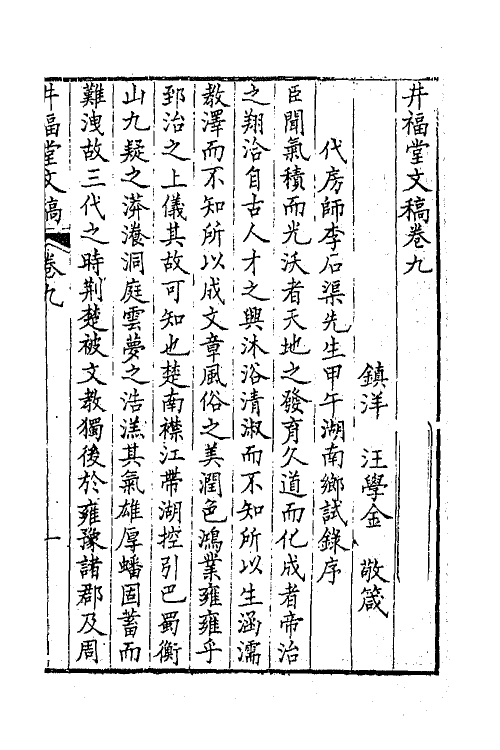 井福堂文稿卷九
鎮洋　汪學金　敬箴
代房師李石渠先生甲午湖南鄉試錄序
臣聞氣積而光沃者天地之發育久道而化成者帝治
之翔洽自古人才之興沐浴清淑而不知所以生涵濡
教澤而不知所以成文章風俗之美潤色鴻業雍雍乎
郅治之上儀其故可知也楚南襟江帶湖控引巴蜀衡
山九疑之漭瀁洞庭雲夢之浩溔其氣雄厚蟠固蓄而
難洩故三代之時荆楚被文教獨後於雍豫諸郡及周
井福堂文稿　卷九　一